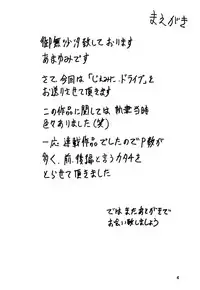 まえがき
御無沙汰致しております
あまゆみです
さて今回は「じぇみに・ドライブ」を
お送りさせて頂きます
この作品に関しては執筆当時
色々ありました(笑)
一応連載作品でしたのでP数が
多く、前、後編と言うカタチを
とらせて頂きました
ではまたあとがきで
お会い致しましょう